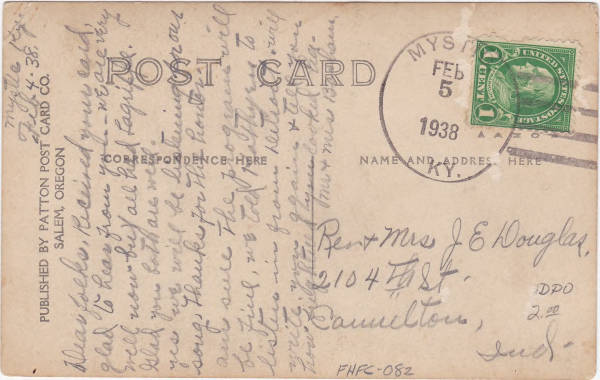 POST CARD
CORRESPONDENCE HERE
NAME AND ADDRESS HERE
PUBLISHED BY PATTON POST CARD CO.
SALEM, OREGON
Feb 4-38.
Dear folks, Received your card,
glad to hear from you - we are very
well now but all had Lagrippe.
Glad you both are well.
yes we will be listening for our
song, thanks for the honor.
am sure the program will
be fine, we told Mrs
listen in from Detroit will
write you again & tell you
how
Mr & Mrs
MYST
FEB
5
1938
KY.
UNITED STATES POSTAGE
1 CENT 1
Rev & Mrs J E Douglas,
2104 4th St.
Cannelton,
Ind.
DPO
2.00
FHFC-082